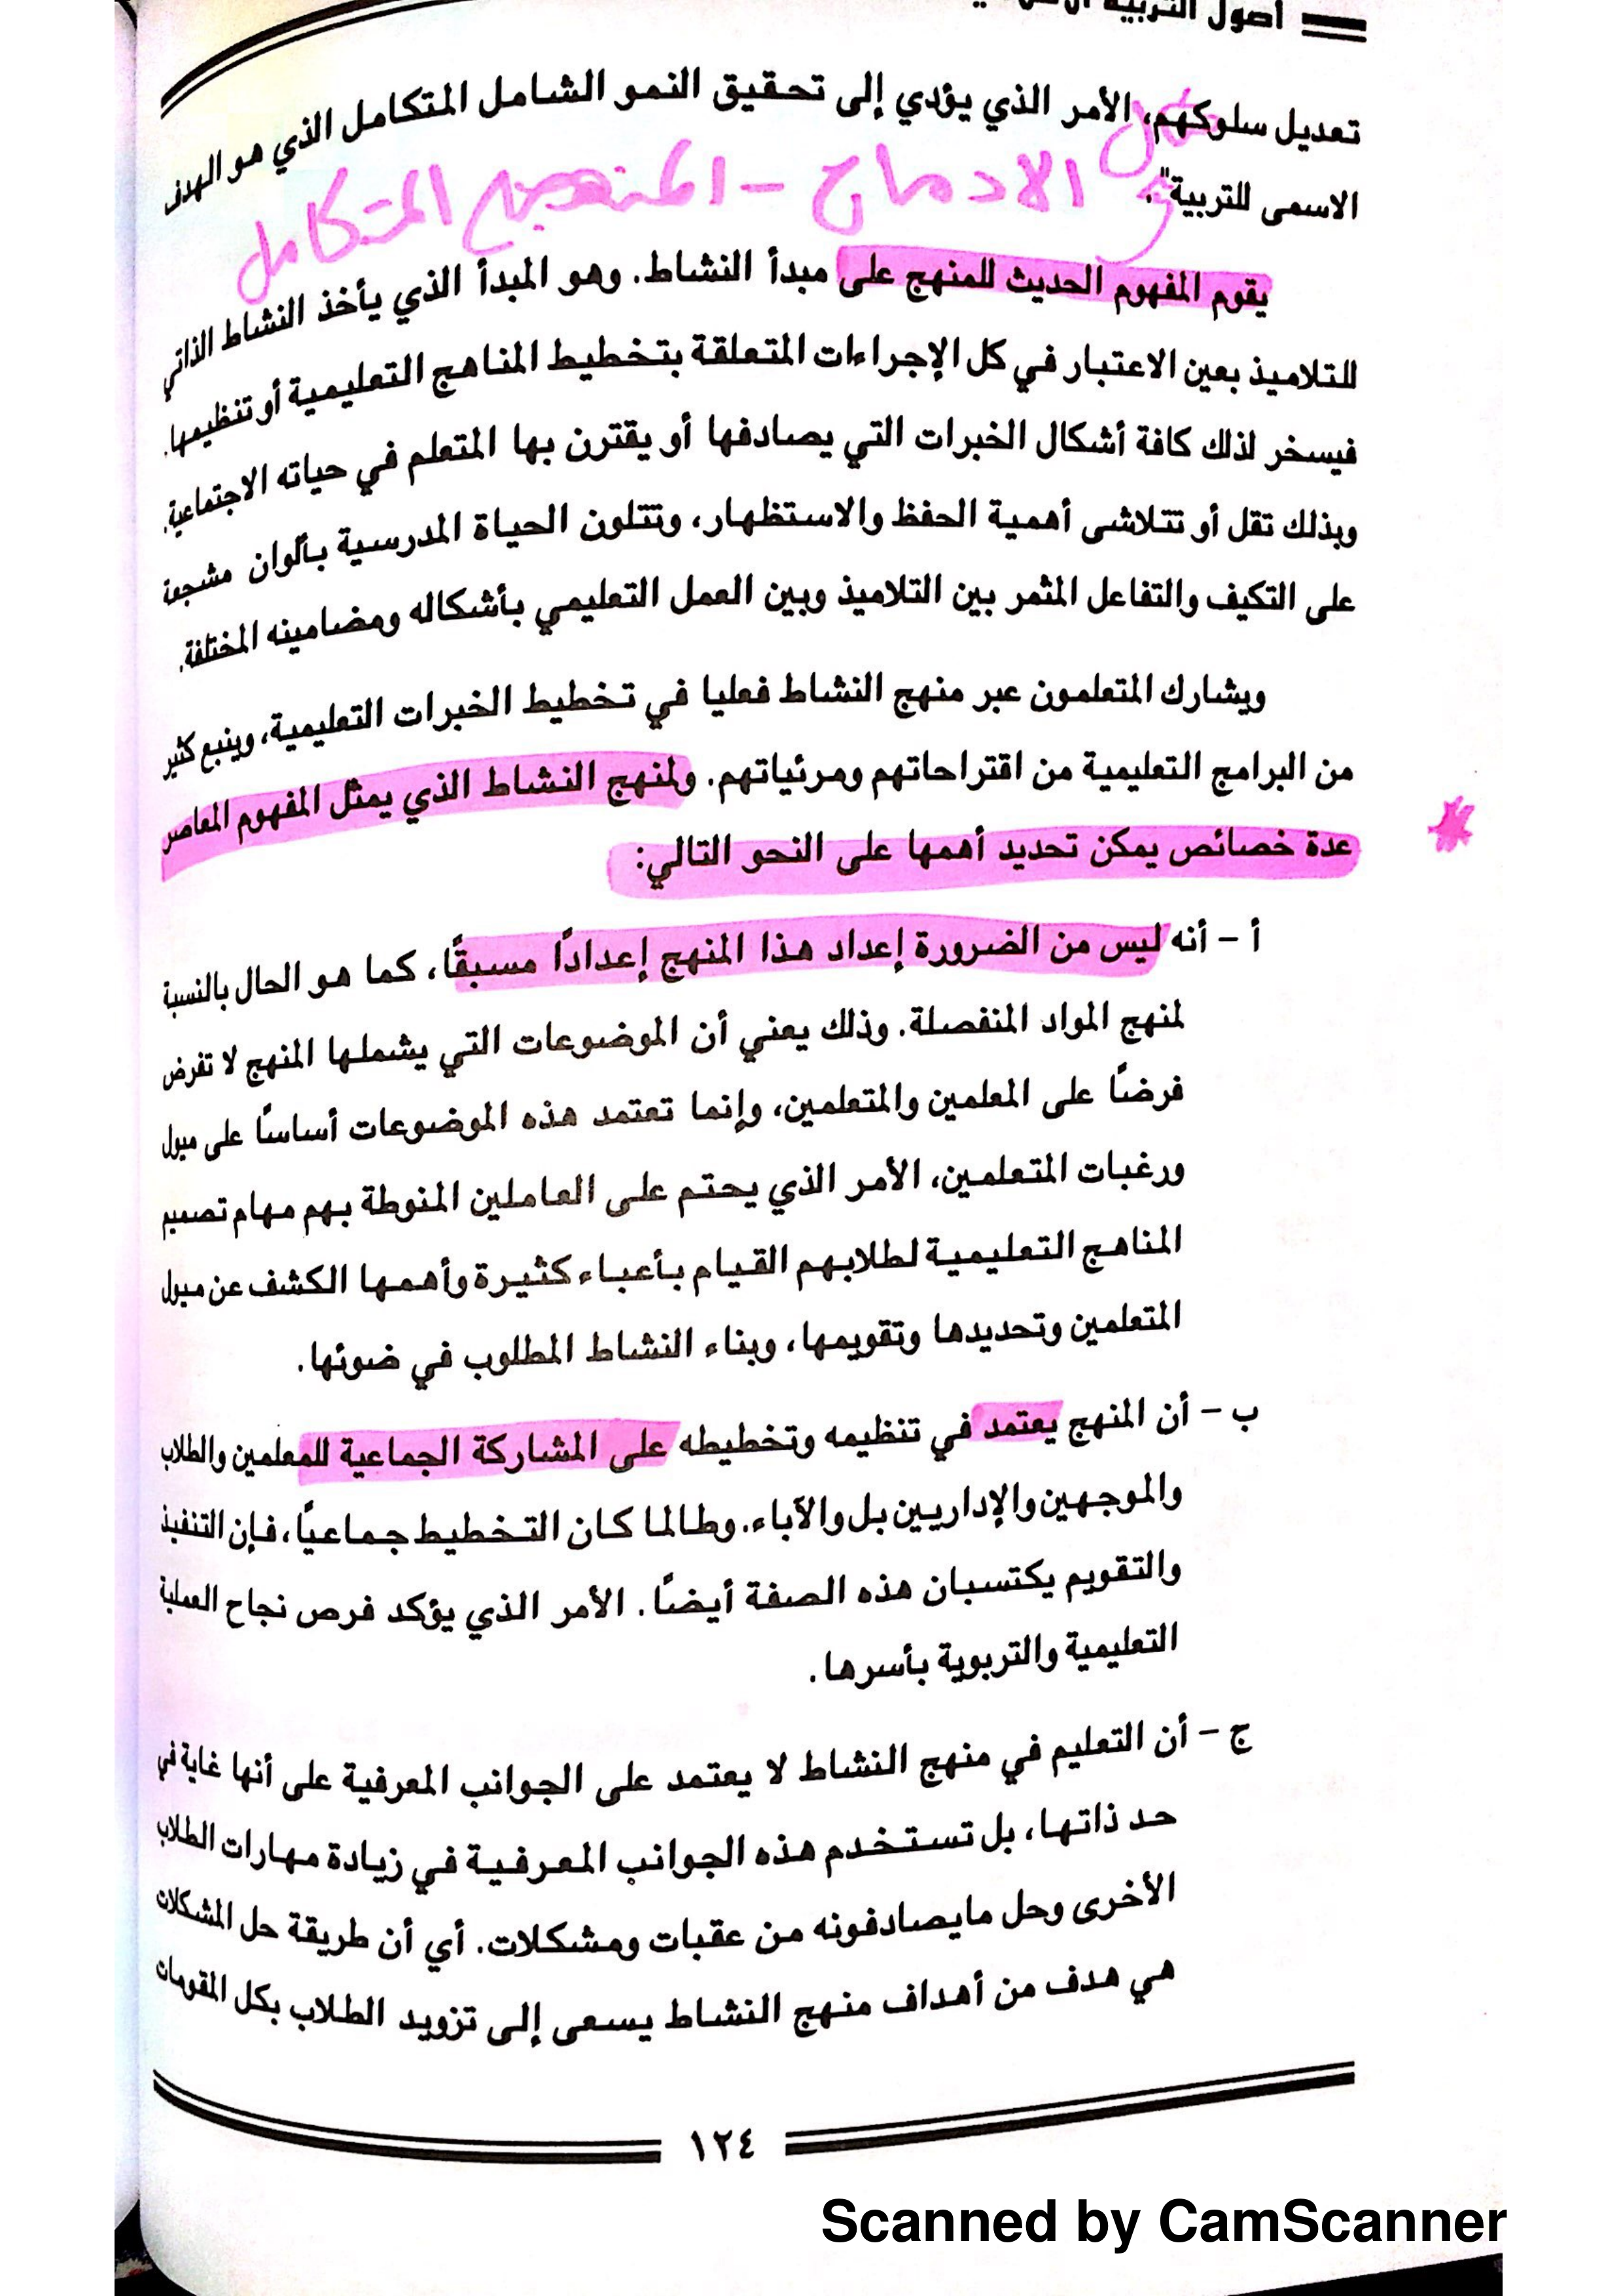 أصول التربية
تعديل سلوكهم، الأمر الذي يؤدي إلى تحقيق النمو الشامل المتكامل الذي هو الهدف
الادماج - المنهج المتكامل
الاسمى للتربية".
يقوم المفهوم الحديث للمنهج على مبدأ النشاط. وهو المبدأ الذي يأخذ النشاط الذاتي
للتلاميذ بعين الاعتبار في كل الإجراءات المتعلقة بتخطيط المناهج التعليمية أو تنظيمها.
فيسخر لذلك كافة أشكال الخبرات التي يصادفها أو يقترن بها المتعلم في حياته الاجتماعية.
وبذلك تقل أو تتلاشى أهمية الحفظ والاستظهار، وتتلون الحياة المدرسية بألوان مشجعة
على التكيف والتفاعل المثمر بين التلاميذ وبين العمل التعليمي بأشكاله ومضامينه المختلفة.
ويشارك المتعلمون عبر منهج النشاط فعليا في تخطيط الخبرات التعليمية، وينبع كثير
من البرامج التعليمية من اقتراحاتهم ومرئياتهم. ولمنهج النشاط الذي يمثل المفهوم المعاصر
عدة خصائص يمكن تحديد أهمها على النحو التالي:
أ - أنه ليس من الضرورة إعداد هذا المنهج إعدادًا مسبقًا، كما هو الحال بالنسبة
لمنهج المواد المنفصلة. وذلك يعني أن الموضوعات التي يشملها المنهج لا تفرض
فرضًا على المعلمين والمتعلمين، وإنما تعتمد هذه الموضوعات أساسًا على ميول
ورغبات المتعلمين، الأمر الذي يحتم على العاملين المنوطة بهم مهام تصميم
المناهج التعليمية لطلابهم القيام بأعباء كثيرة وأهمها الكشف عن ميول
المتعلمين وتحديدها وتقويمها، وبناء النشاط المطلوب في ضوئها.
ب - أن المنهج يعتمد في تنظيمه وتخطيطه على المشاركة الجماعية للمعلمين والطلاب
والموجهين والإداريين بل والآباء. وطالما كان التخطيط جماعيًا، فإن التنفيذ
والتقويم يكتسبان هذه الصفة أيضًا. الأمر الذي يؤكد فرص نجاح العملية
التعليمية والتربوية بأسرها.
ج - أن التعليم في منهج النشاط لا يعتمد على الجوانب المعرفية على أنها غاية في
حد ذاتها، بل تستخدم هذه الجوانب المعرفية في زيادة مهارات الطلاب
الأخرى وحل مايصادفونه من عقبات ومشكلات. أي أن طريقة حل المشكلات
هي هدف من أهداف منهج النشاط يسعى إلى تزويد الطلاب بكل المقومات
١٢٤
Scanned by CamScanner